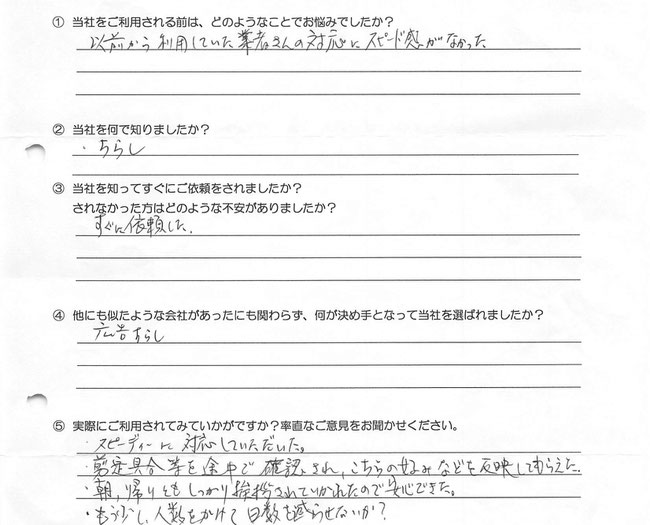 ① 当社をご利用される前は、どのようなことでお悩みでしたか？
以前から利用していた業者さんの対応にスピード感がなかった
② 当社を何で知りましたか？
・ちらし
③ 当社を知ってすぐにご依頼をされましたか？
されなかった方はどのような不安がありましたか？
すぐに依頼した.
④ 他にも似たような会社があったにも関わらず、何が決め手となって当社を選ばれましたか？
広告ちらし
⑤ 実際にご利用されてみていかがですか？率直なご意見をお聞かせください。
・スピーディーに対応していただいた。
・剪定具合等を途中で確認され、こちらの好みなどを反映してもらえた.
・朝、帰りともしっかり挨拶されていかれたので安心できた。
・もう少し、人数をかけて日数を減らせないか？